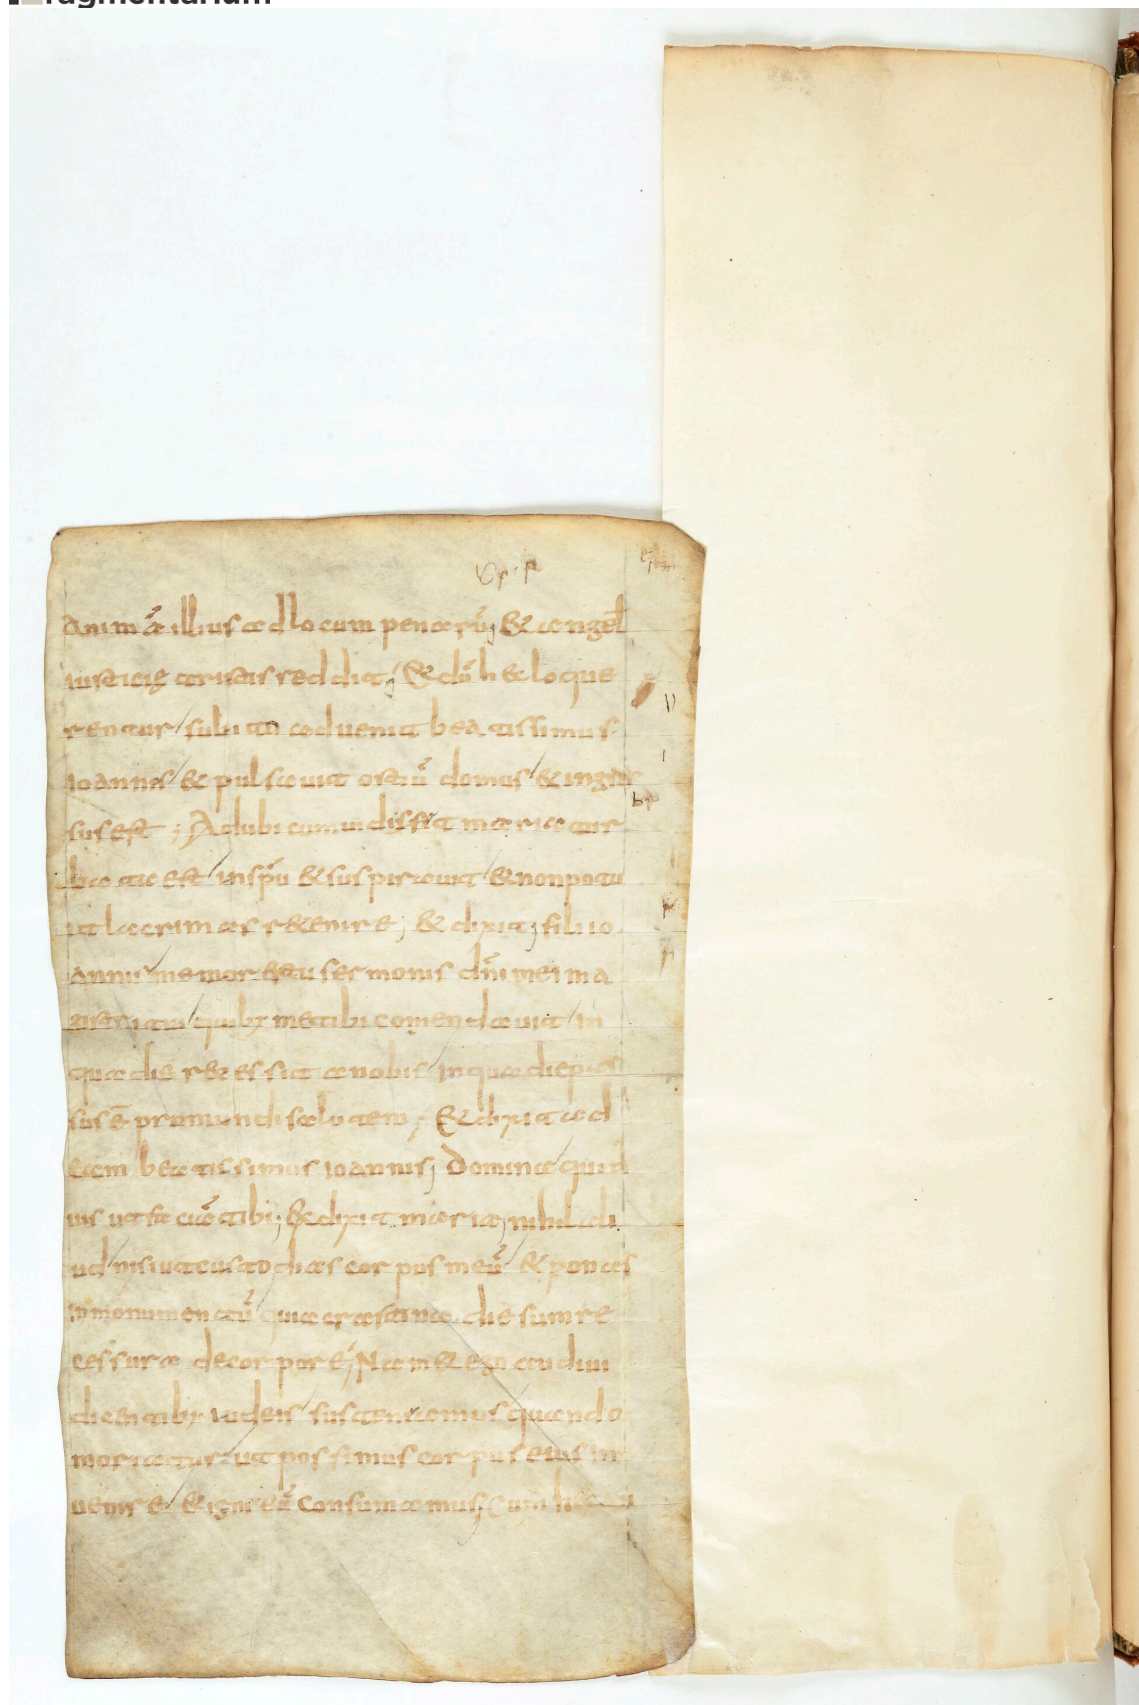 fragmentarium
animā illius ad locum penarū; & angel
iusticię tristis reddit; & dū h& loque
rentur / subito aduenit beatissimus
ioannis / & pulsauit ostiū domus / & ingres
sus est ; Ad ubi cum uidisset maria tur
bata est in spū & suspirauit / & non potu
it lacrimas r&enire; & dixit; fili io
annis memor estu sermonis dn̄i mei ma
gistri tui quib; me tibi comendauit / in
qua die recessit a nobis / in qua die pas
sus ē pro mundi salutem; & dixit ad
eam beatissimus ioannis; Domina quid
uis ut faciā tibi; & dixit maria; nihil ali
ud nisi ut custodias corpus meū & ponas
in monumentū quia crastina die sum re
cessura de corpore; Nam & ego audiui
dicentib; iudeis / sustineamus quando
moriatur ut possimus corpus eius in
uenire / & igni eū consumamus; Cum